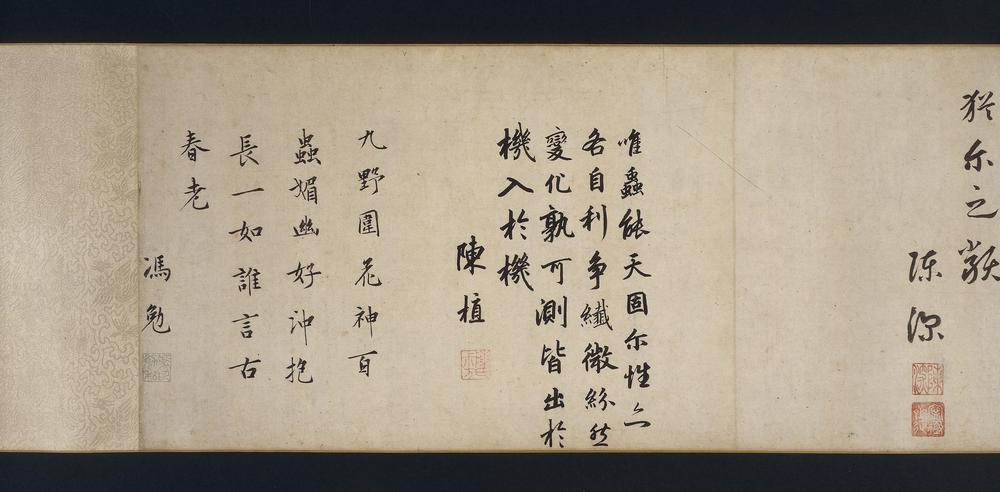 猶尔之
陳深
唯蟲能天固尔性
各自利争纖微紛然
變化孰可測皆出於
機入於機
陳植
九野圍花神百
蟲媚幽好沖抱
長一如誰言古
春老
馮勉